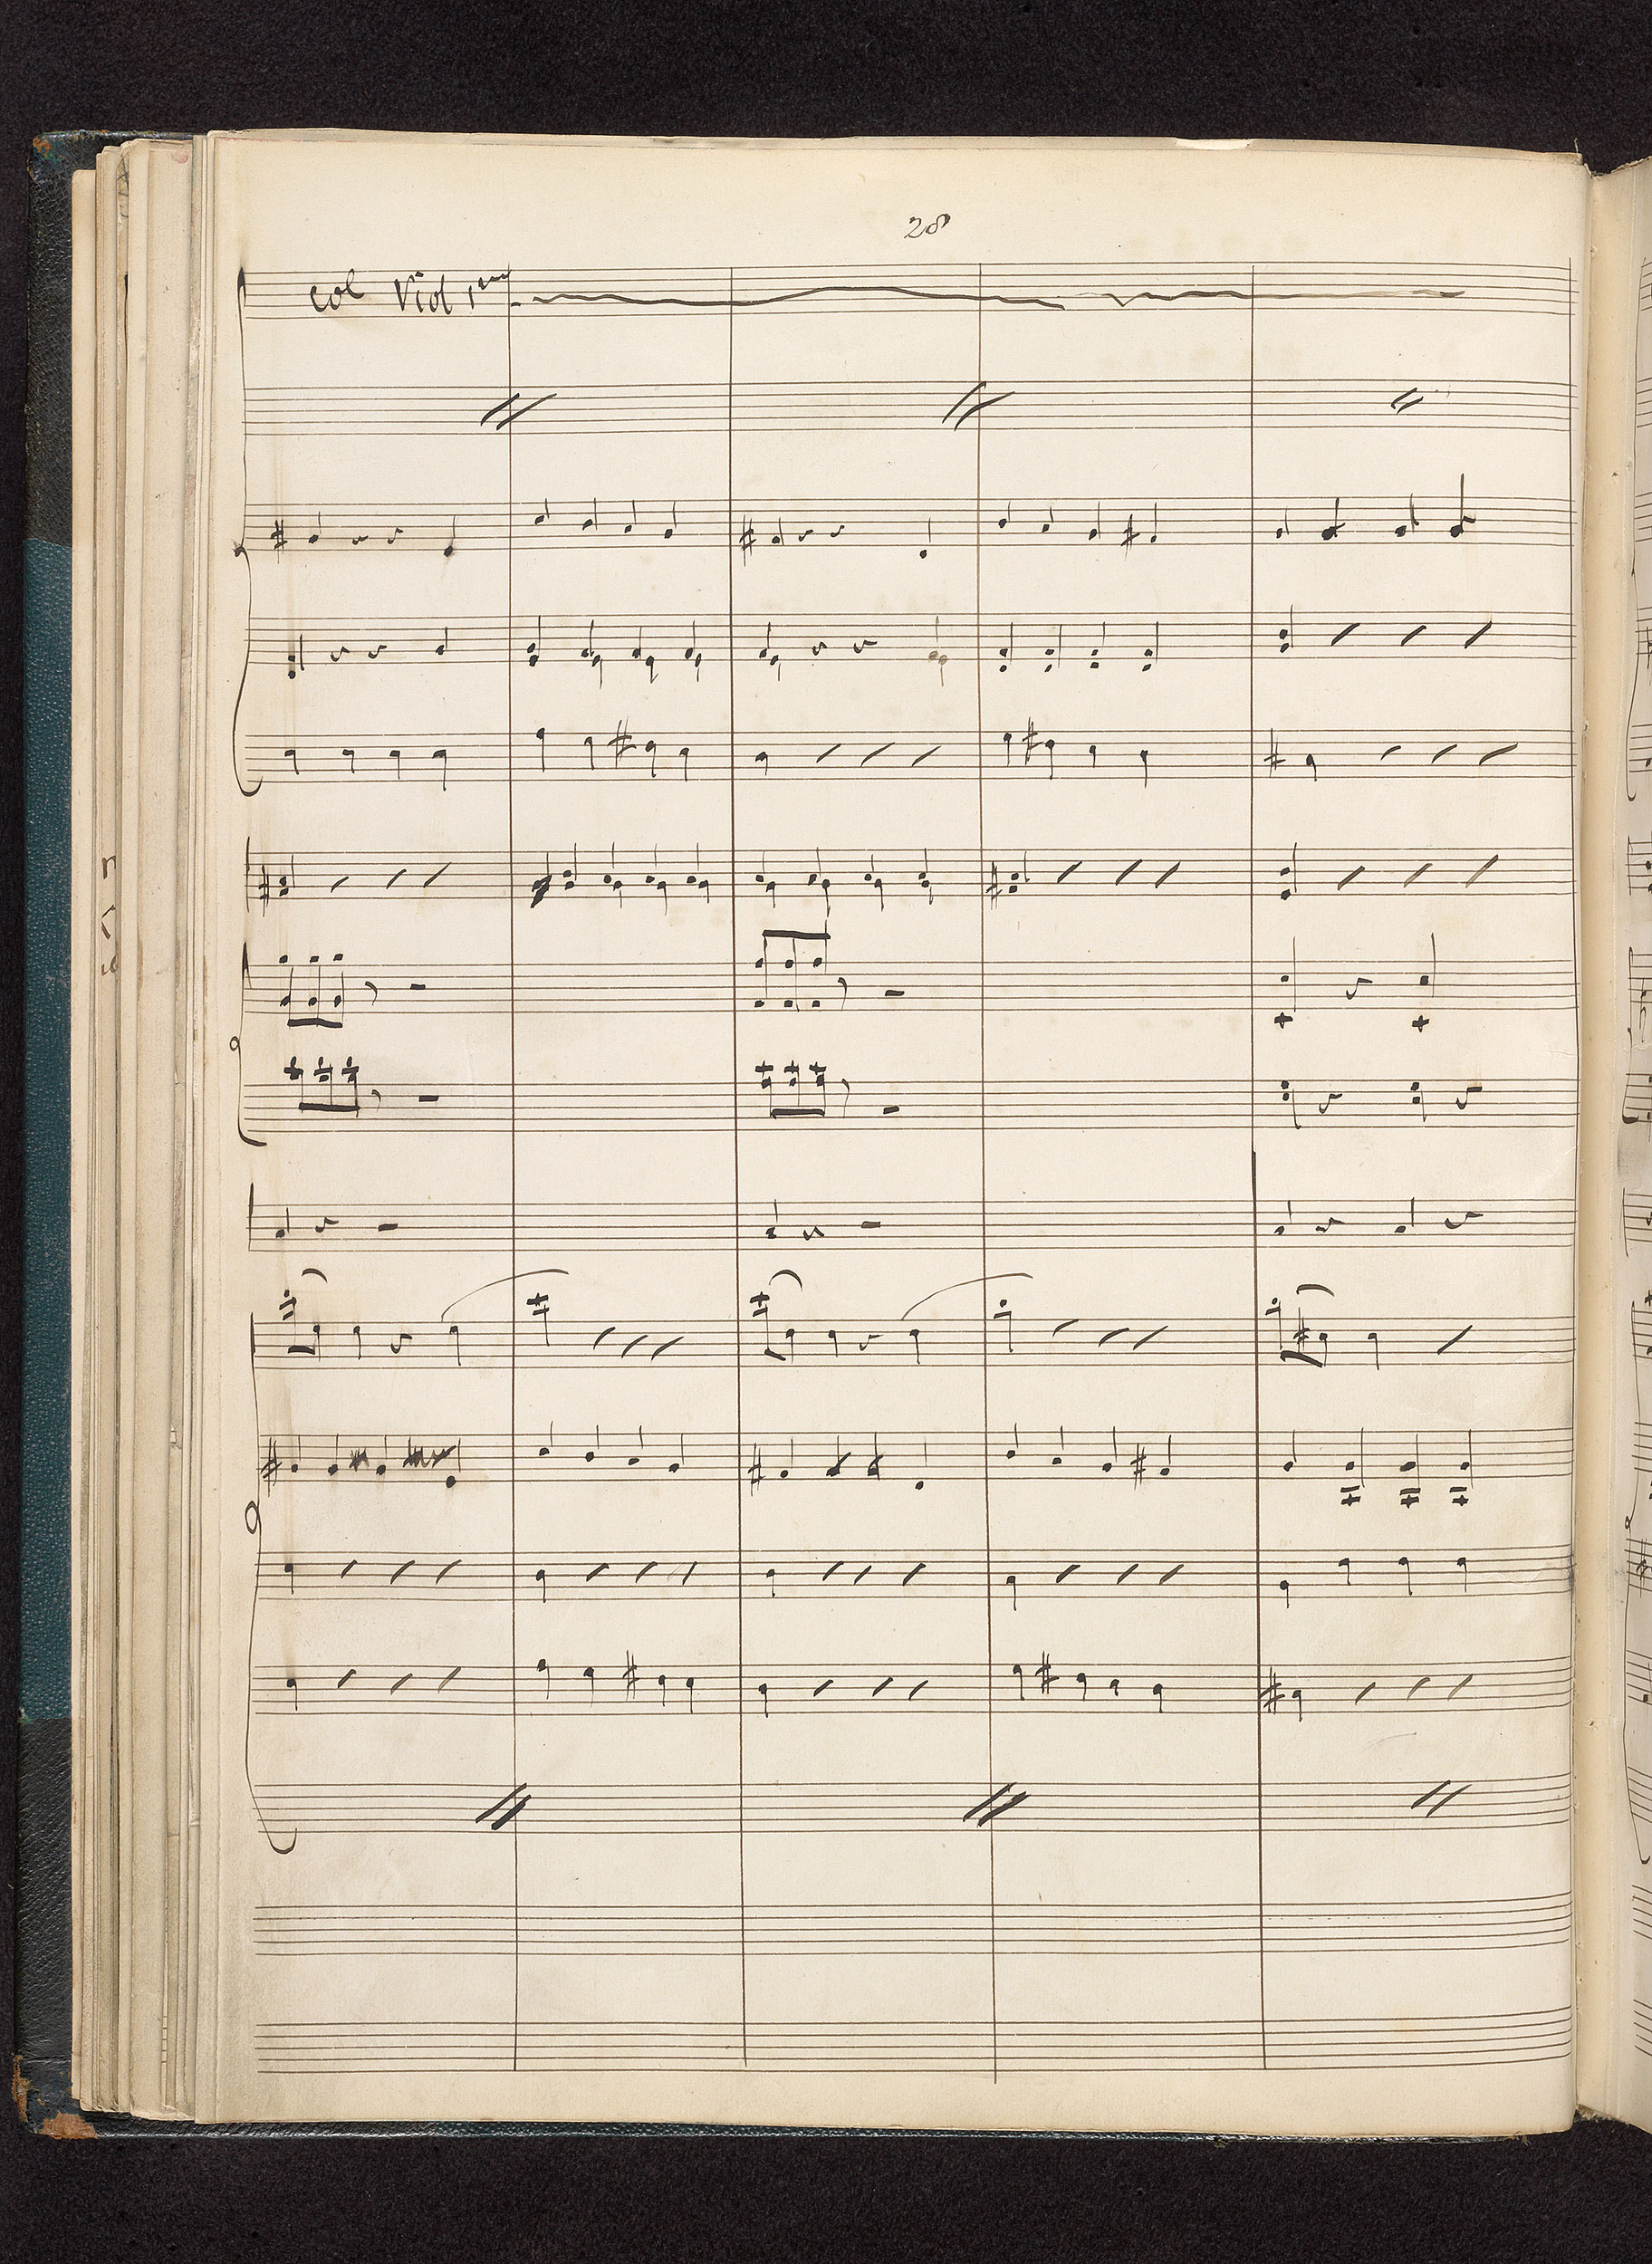 28
col Viol 1mo